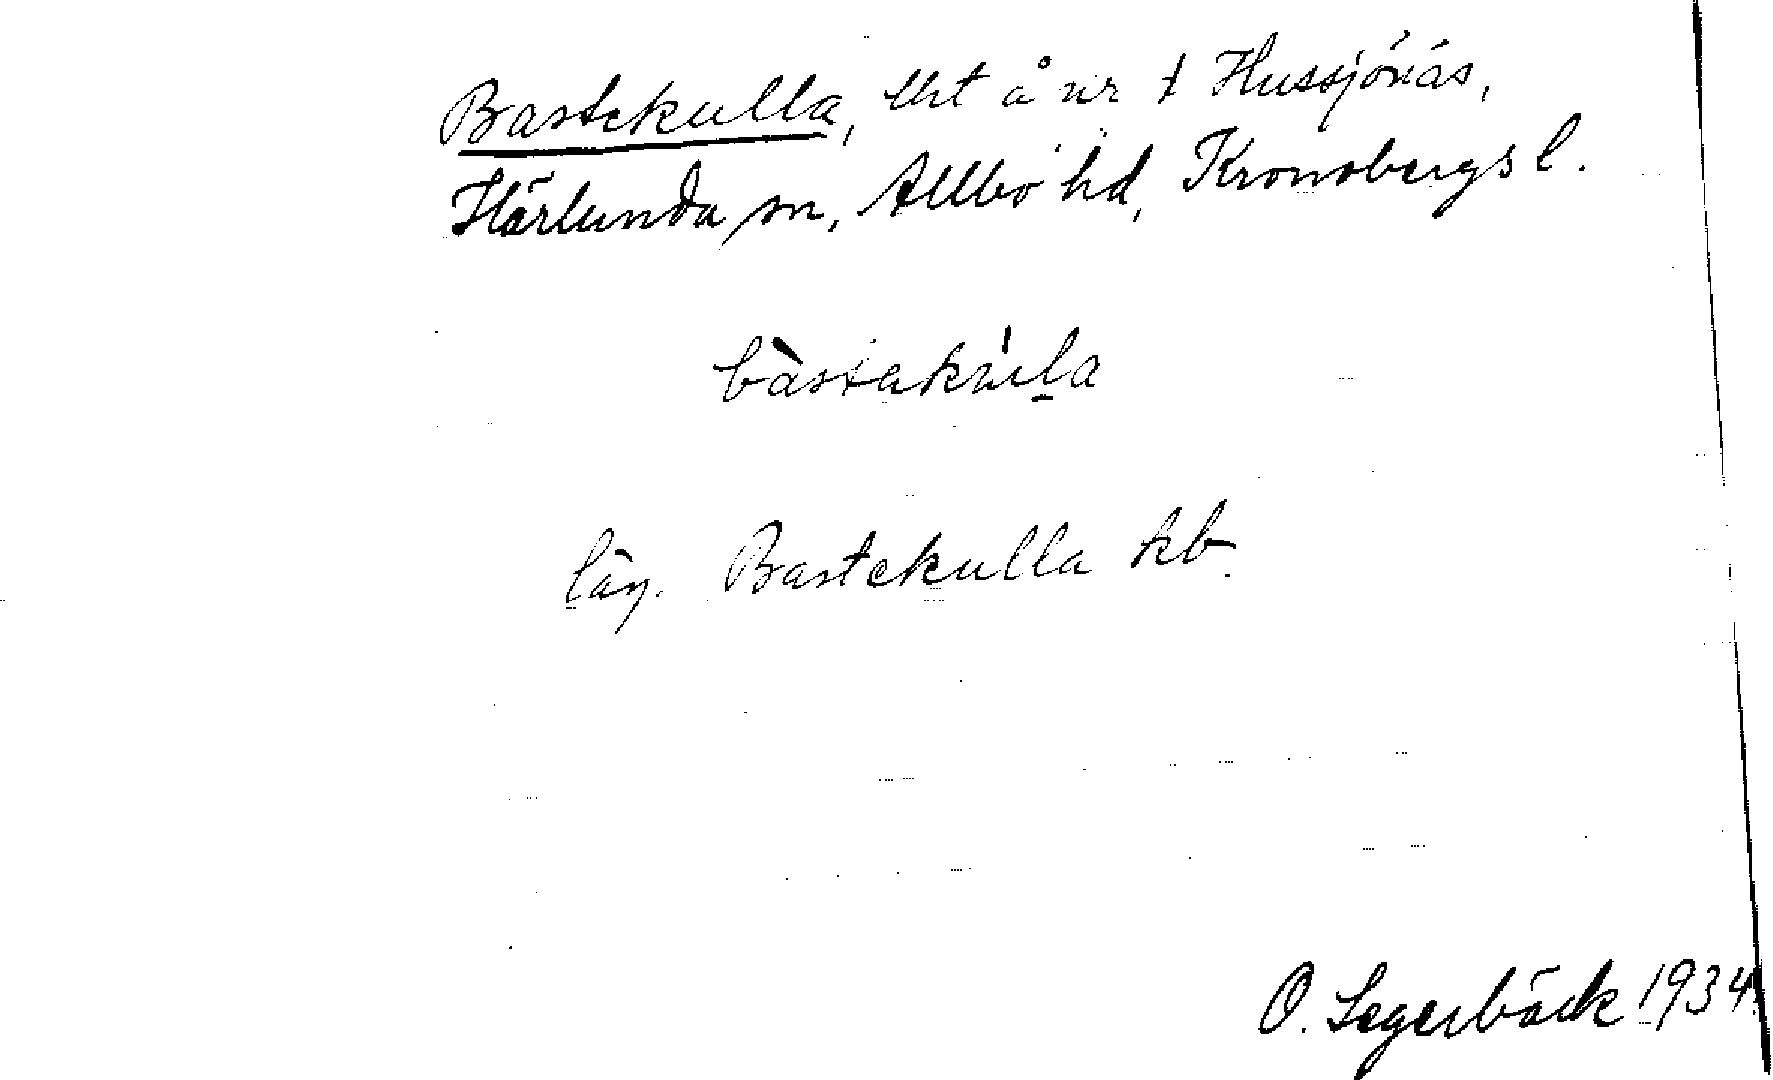 Bastekulla, tht å nr 1 Hussjönäs,
Härlunda sn, Allbo hd, Kronobergs l.
bàstakùla
läg. Bastekulla kb.
O. Segerbäck 1934